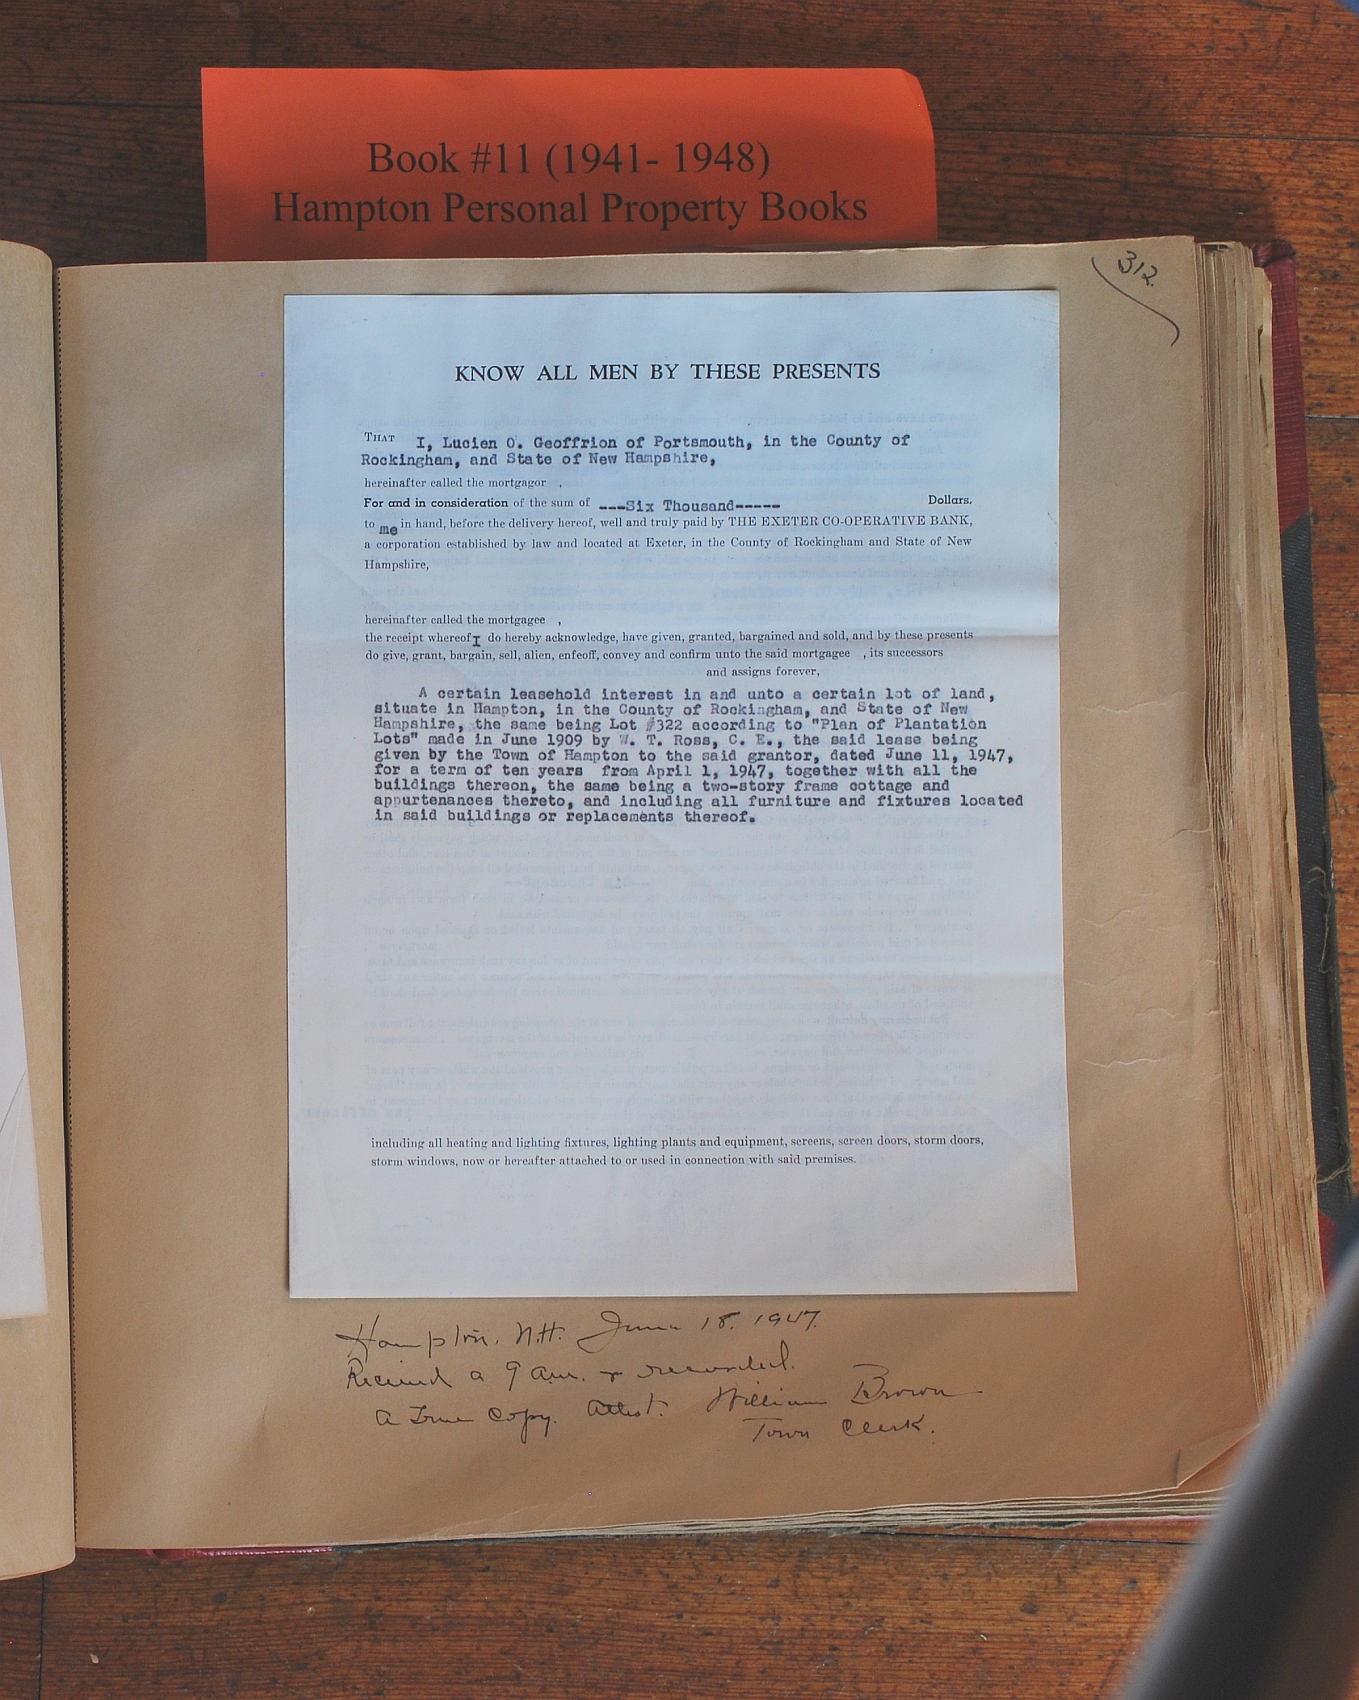 Book #11 (1941- 1948)
Hampton Personal Property Books
312.
KNOW ALL MEN BY THESE PRESENTS
THAT I, Lucien O. Geoffrion of Portsmouth, in the County of
Rockingham, and State of New Hampshire,
hereinafter called the mortgagor ,
For and in consideration of the sum of ---Six Thousand----- Dollars,
to me in hand, before the delivery hereof, well and truly paid by THE EXETER CO-OPERATIVE BANK,
a corporation established by law and located at Exeter, in the County of Rockingham and State of New
Hampshire,
hereinafter called the mortgagee ,
the receipt whereof I do hereby acknowledge, have given, granted, bargained and sold, and by these presents
do give, grant, bargain, sell, alien, enfeoff, convey and confirm unto the said mortgagee , its successors
and assigns forever,
A certain leasehold interest in and unto a certain lot of land,
situate in Hampton, in the County of Rockingham, and State of New
Hampshire, the same being Lot #322 according to "Plan of Plantation
Lots" made in June 1909 by W. T. Ross, C. E., the said lease being
given by the Town of Hampton to the said grantor, dated June 11, 1947,
for a term of ten years from April 1, 1947, together with all the
buildings thereon, the same being a two-story frame cottage and
appurtenances thereto, and including all furniture and fixtures located
in said buildings or replacements thereof.
including all heating and lighting fixtures, lighting plants and equipment, screens, screen doors, storm doors,
storm windows, now or hereafter attached to or used in connection with said premises.
Hampton. N.H. June 18. 1947.
Received a 9 a.m. & recorded.
A True Copy. Attest: William Brown
Town Clerk.